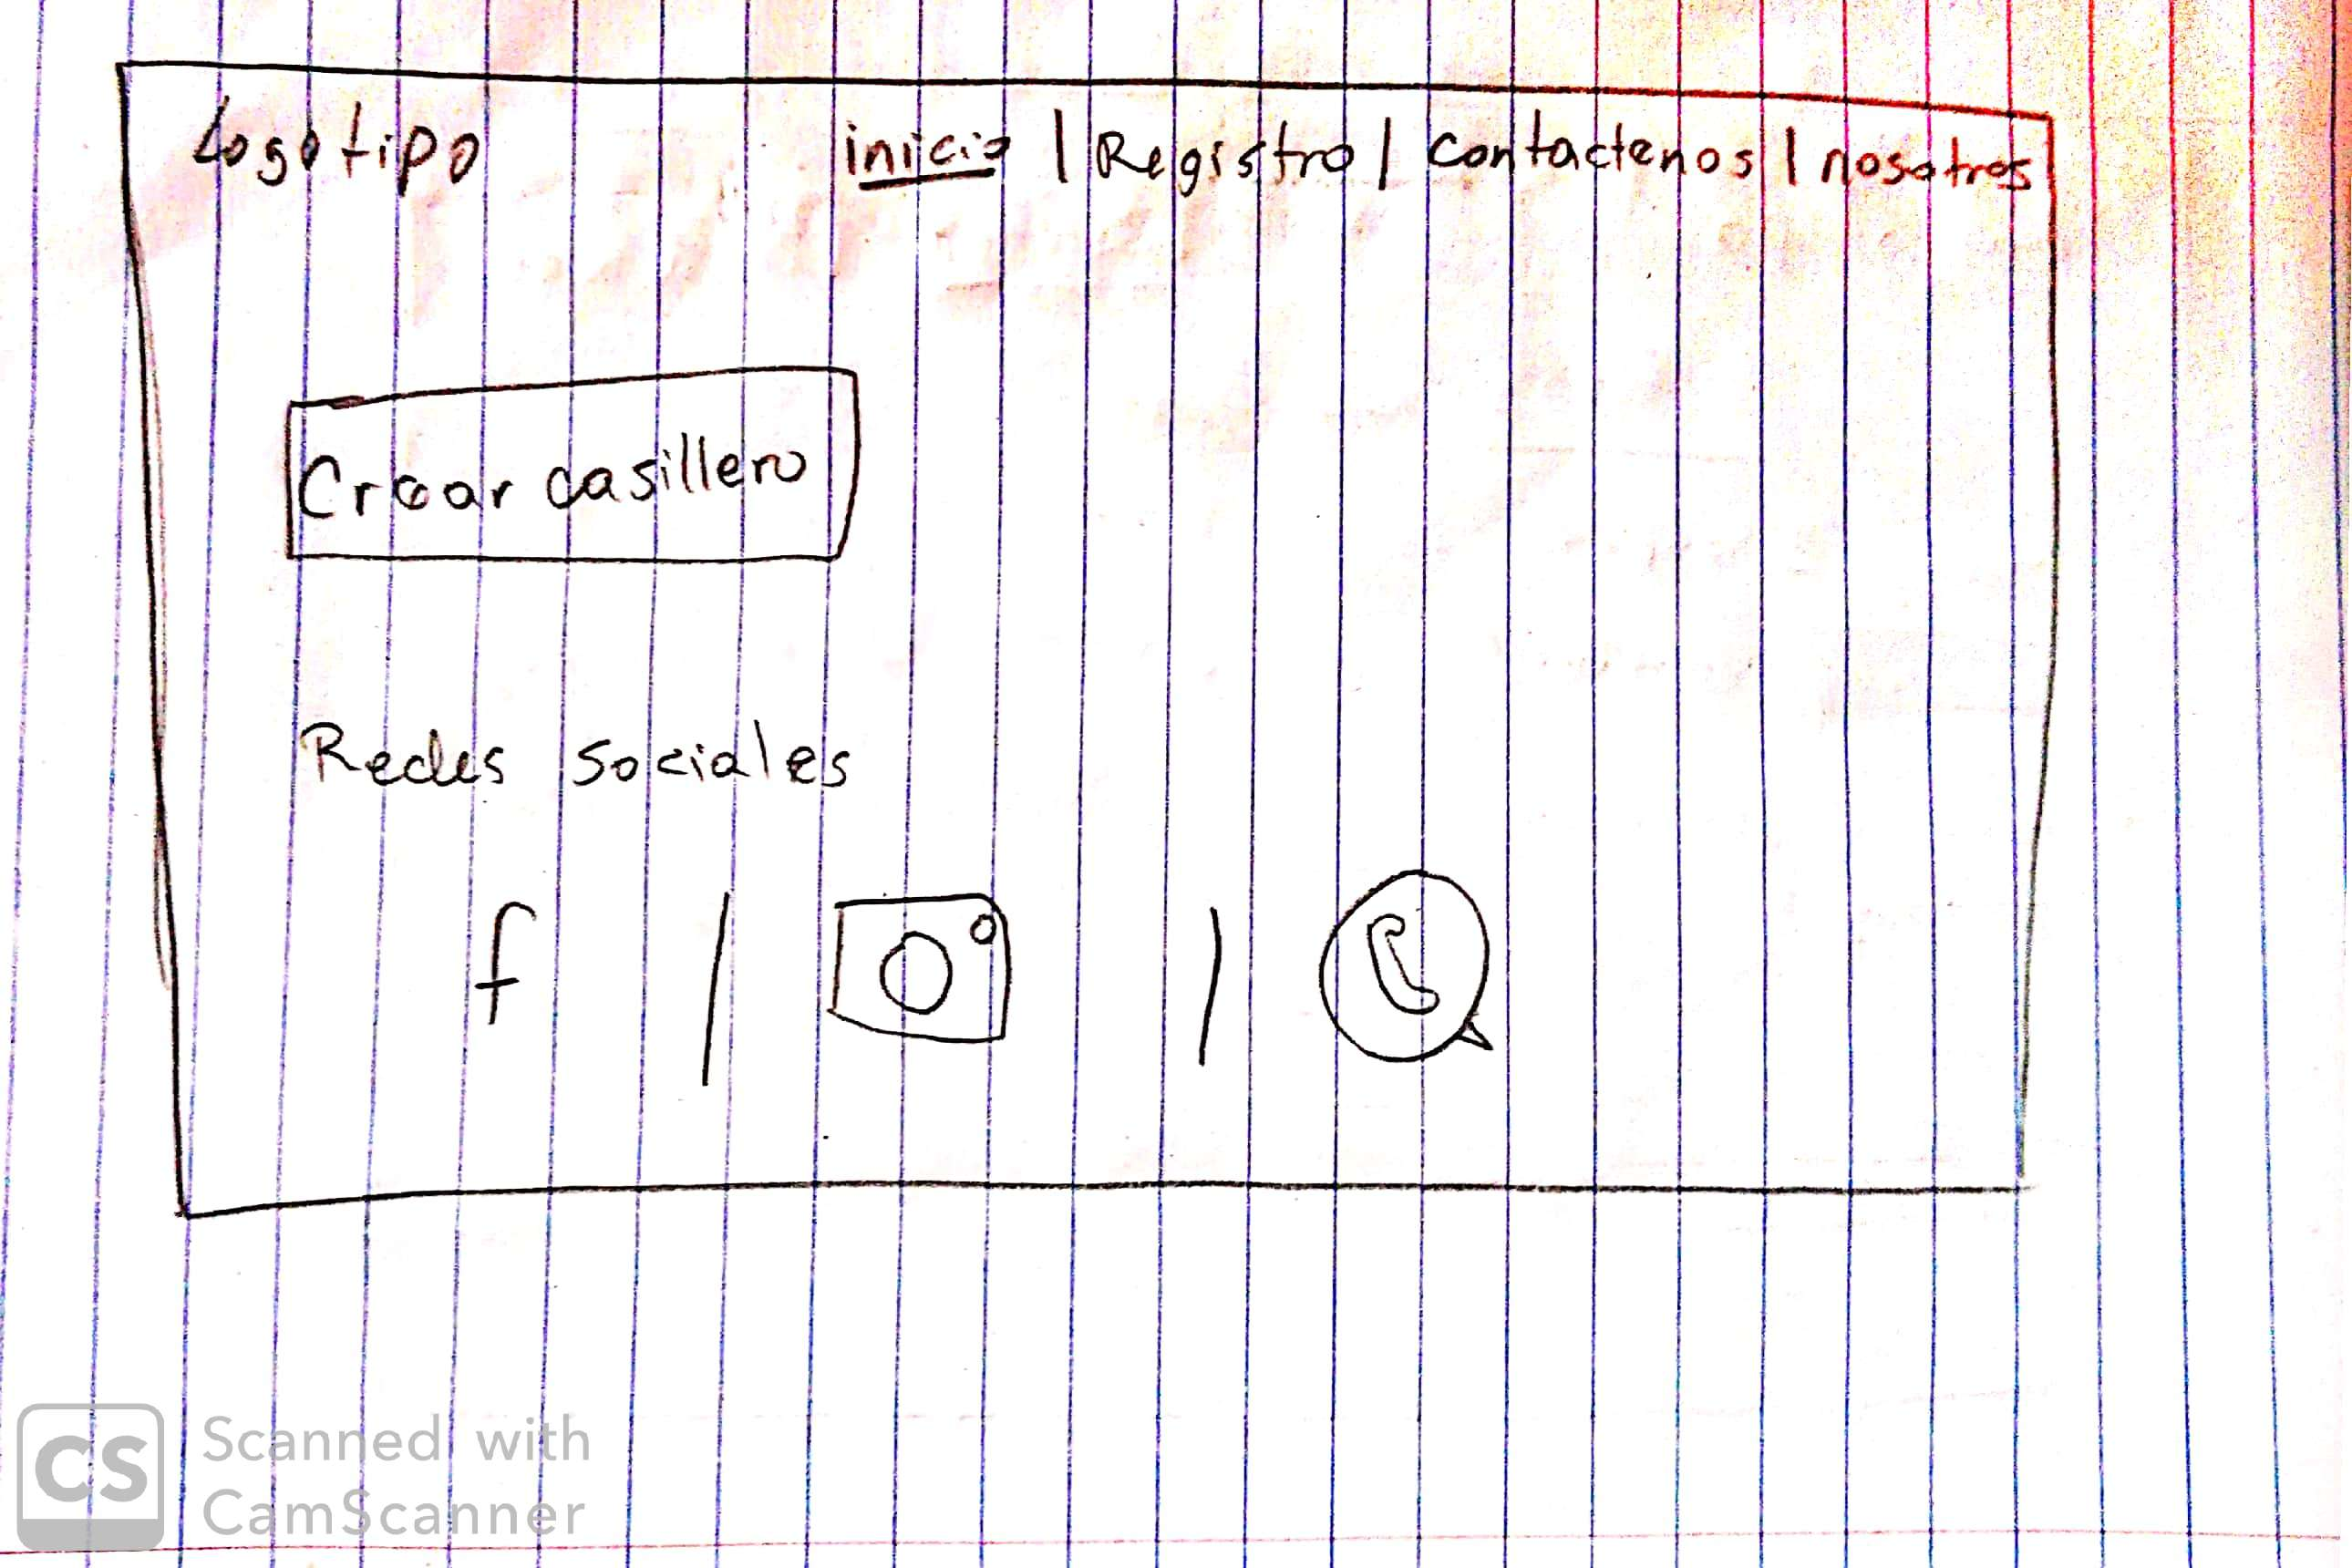 Logotipo inicio | Registro | contactenos | nosotros
Crear casillero
Redes sociales
f | |
CS Scanned with
CamScanner